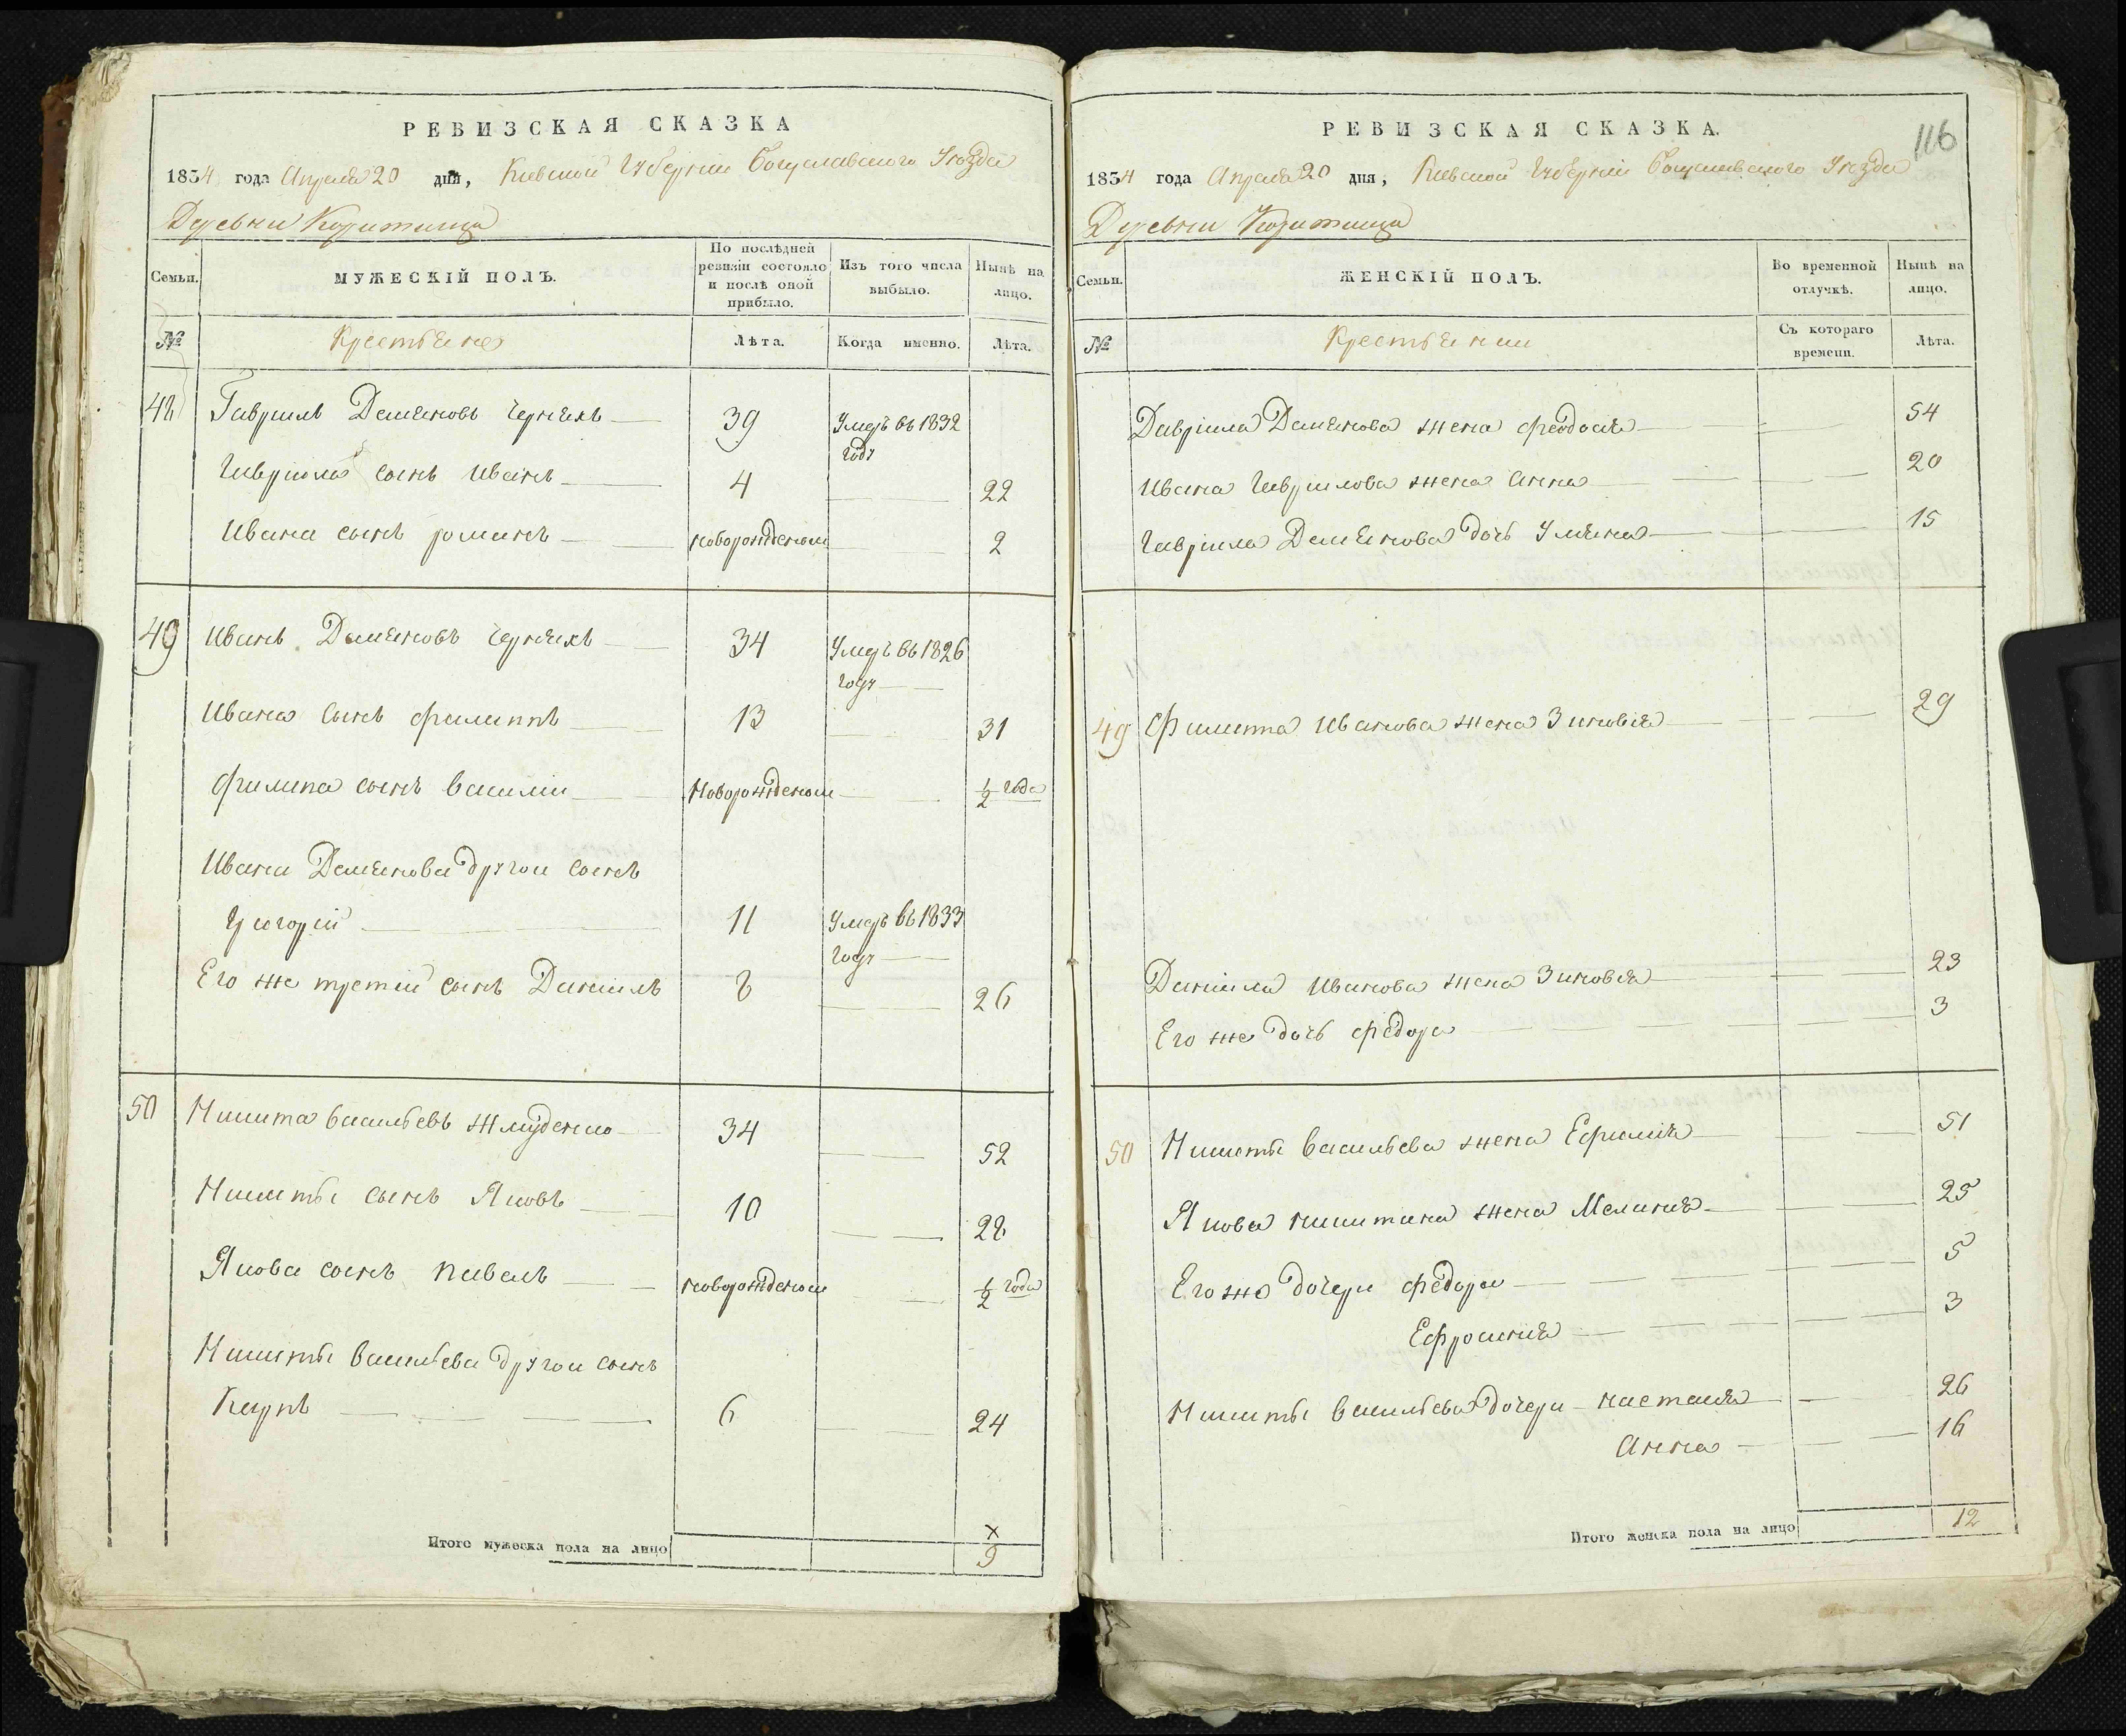 РЕВИЗСКАЯ СКАЗКА
1834 года Апреля 20 дня, Киевской Губернии Богуславского Уезда
Деревни
Семьи.
МУЖЕСКІЙ ПОЛЪ.
По послѣдней ревизіи состояло и послѣ оной прибыло.
Изъ того числа выбыло.
Нынѣ на лицо.
№
Крестьяне
Лѣта.
Когда именно.
Лѣта.
48 Гавріилъ Демяновъ Чернякъ 39 Умеръ въ 1832
году
Гавріила сынъ Иванъ 4 22
Ивана сынъ романъ новорожденъ 2
49 Иванъ Демяновъ Чернякъ 34 Умеръ въ 1826
году
Ивана сынъ филиппъ 13 31
филипа сынъ василий новорожденъ ½ года
Ивана Демянова другой сынъ
Григорій 11 Умеръ въ 1833
году
Его же третій сынъ Даниилъ 8 26
50 Никита васильевъ жмуденко 34 52
Никиты сынъ Яковъ 10 28
Якова сынъ павелъ новорожденъ ½ года
Никиты васильева другой сынъ
Карпъ 6 24
Итого мужеска пола на лицо
х
9
РЕВИЗСКАЯ СКАЗКА.
116
1834 года Апреля 20 дня, Киевской Губерніи Богуславского Уезда
Деревни
Семьи.
ЖЕНСКІЙ ПОЛЪ.
Во временной отлучкѣ.
Нынѣ на лицо.
№
Крестьянки
Съ котораго времени.
Лѣта.
Гавріила Демянова жена феодосия 54
Ивана Гаврилова жена Анна 20
Гавріила Демянова дочь Уляна 15
49 Филиппа Иванова жена Зиновія 29
Даниила Иванова жена Зиновия 23
Его же дочь федора 3
50 Никиты васильева жена Ефимія 51
Якова никитина жена Меланія 25
Его же дочери федора 5
Ефросинія 3
Никиты васильева дочери настасия 26
Анна 16
Итого женска пола на лицо 12